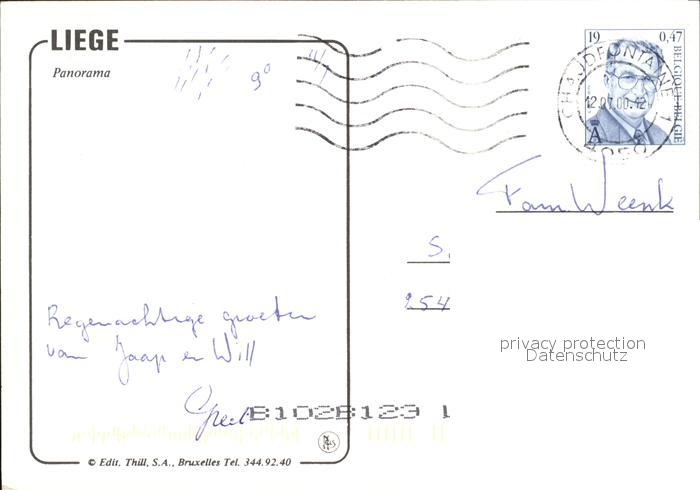 LIEGE
Panorama
9°
19 0,47
BELGIQUE-BELGIE
CHAUDFONTAINE 1
12.07.00.12
4050
A
Fam Weenk
S.
254
Regenachtige groeten
van Jaap en Will
privacy protection
Datenschutz
B102B123 1
© Edit. Thill, S.A., Bruxelles Tel. 344.92.40